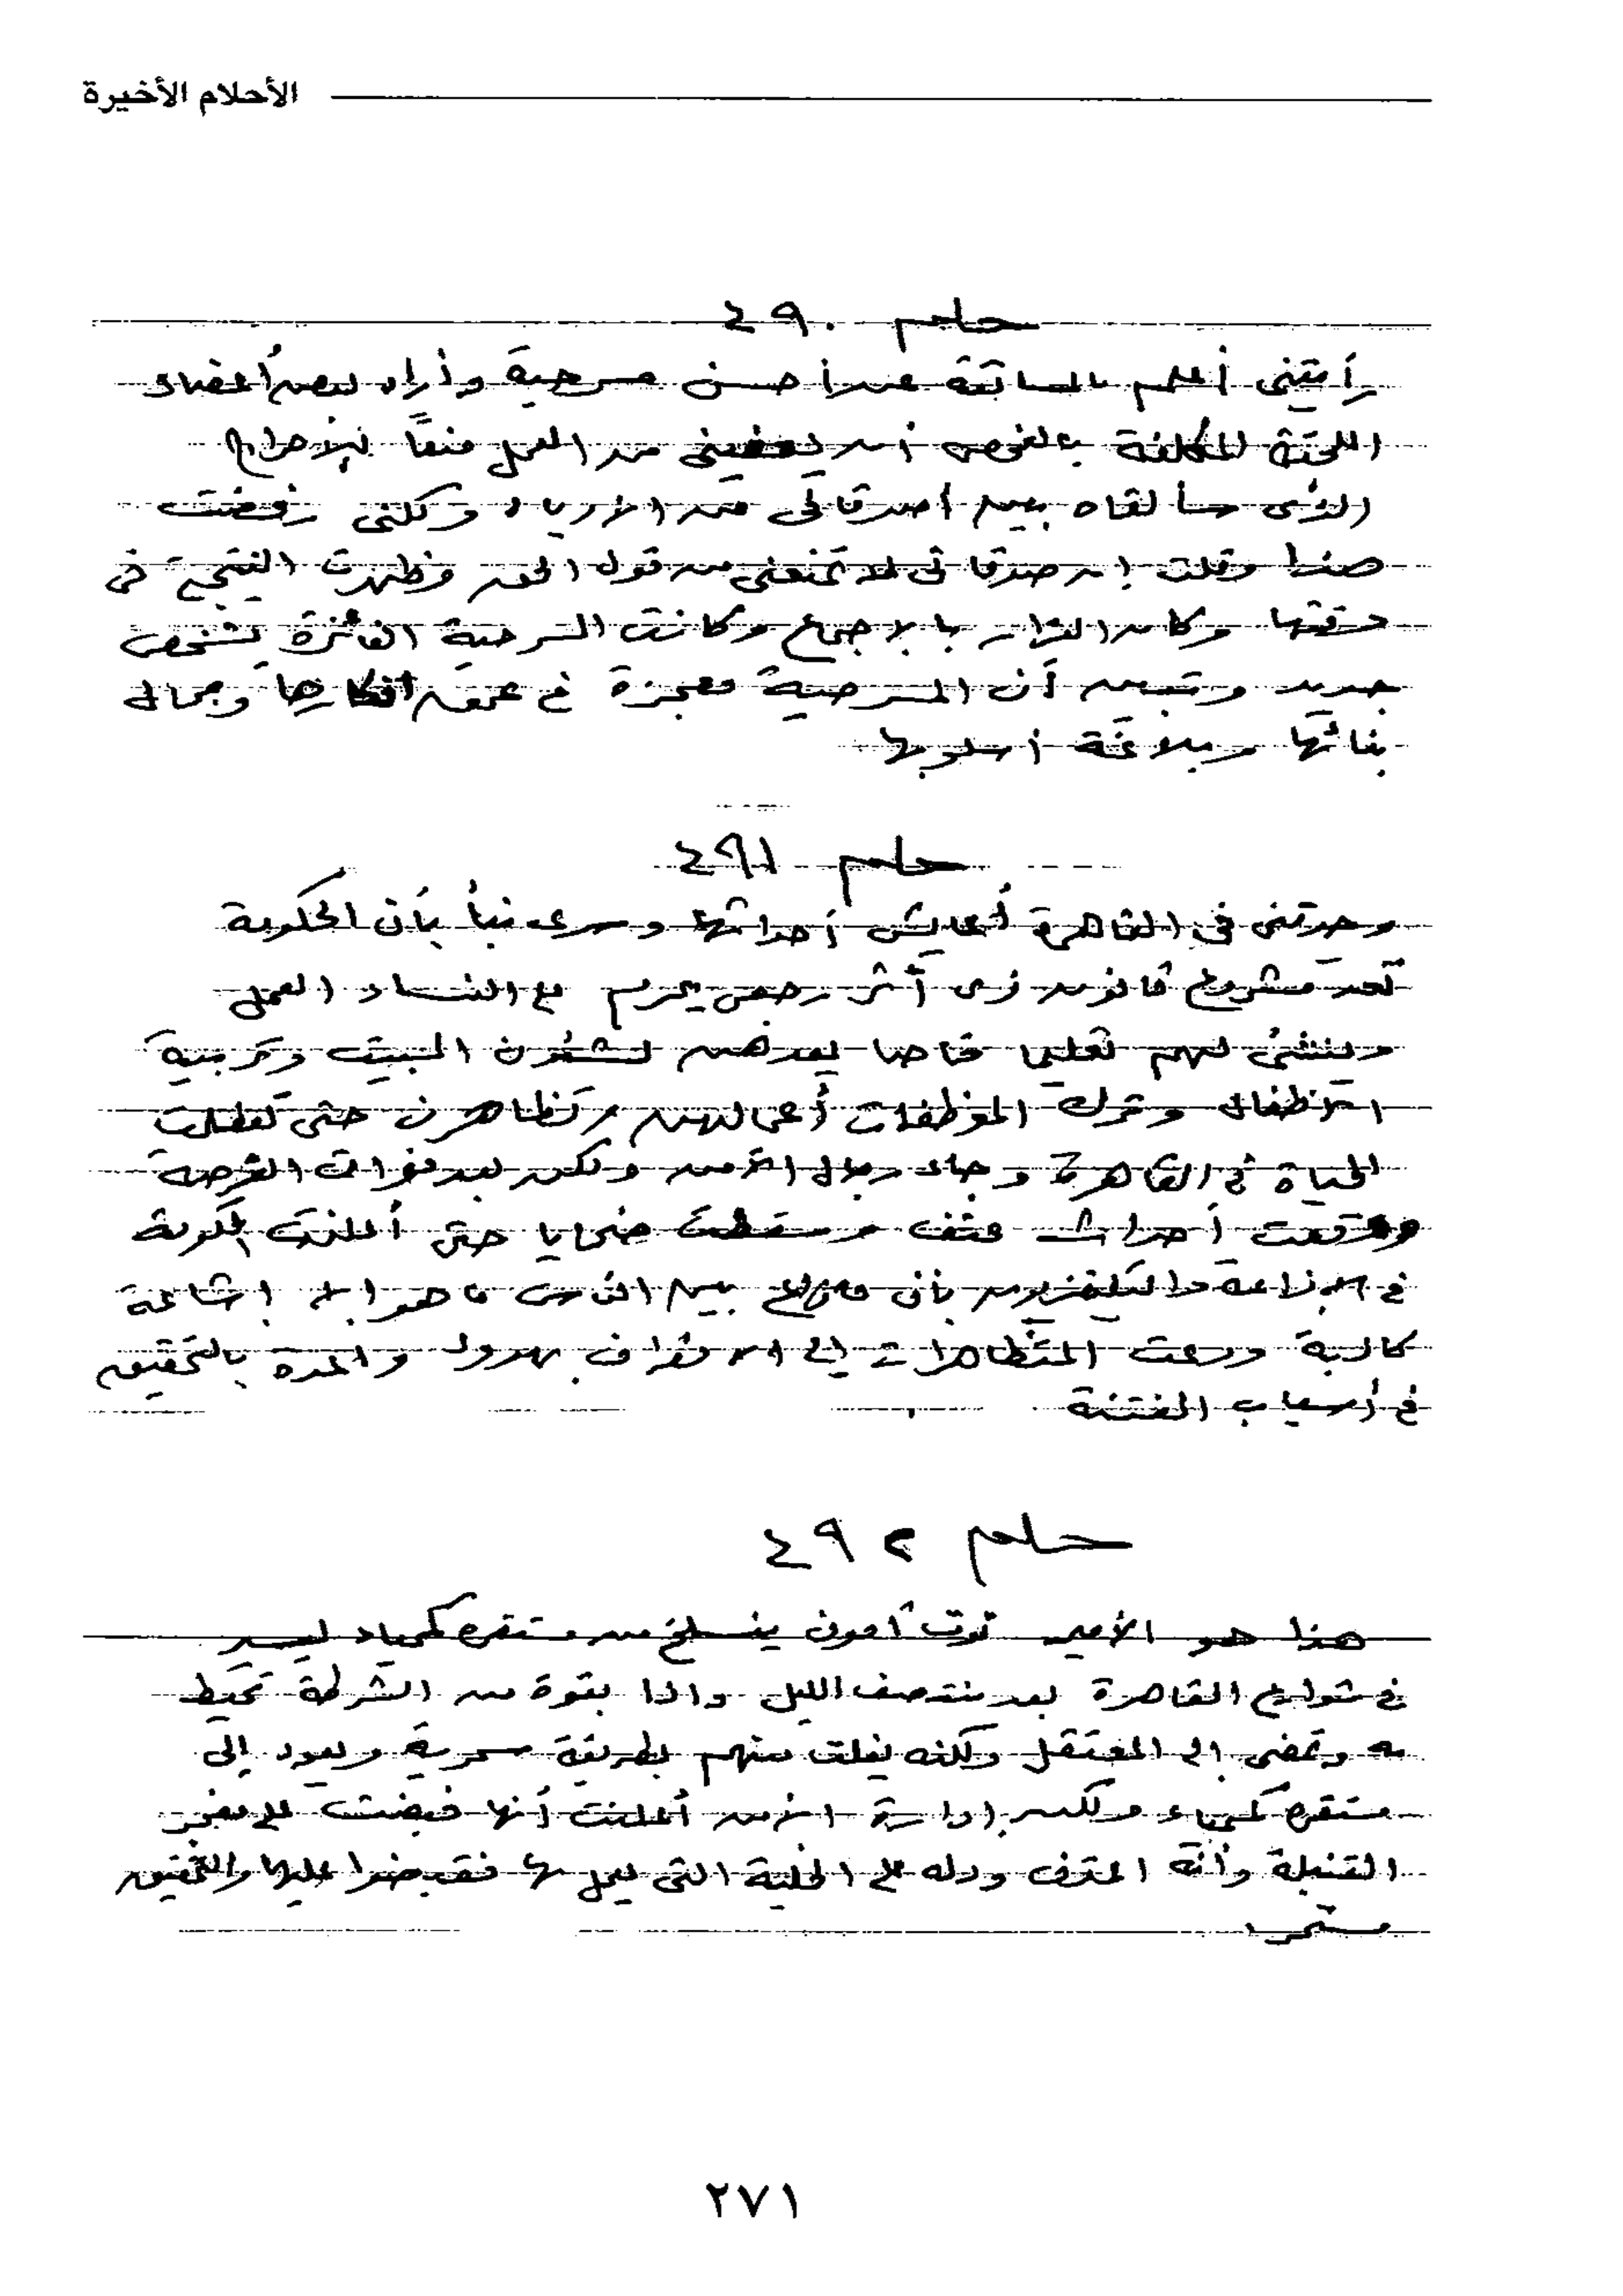 الأحلام الأخيرة
حلم ٤٩٠
رأيتنى أحكم بالمسابقة عن أحسن مسرحية وأراد بعض أعضاء
اللجنة المكلفة بالفحص أن يعفينى من العمل منعًا للإحراج
الذى سألقاه بين أصدقائى من الأدباء ولكنى رفضت
هذا وقلت إن صداقاتى لا تمنعنى من قول الحق وظهرت النتيجة فى
وقتها وكان القرار بالإجماع وكانت المسرحية الفائزة لشخص
جديد وتبين أن المسرحية معجزة فى عمق أفكارها وجمال
بنائها وبلاغة أسلوبها
حلم ٤٩١
وجدتنى فى القاهرة أعايش أحداثها وسرى نبأ بأن الحكومة
تعد مشروع قانون ذى أثر رجعى يحرم على النساء العمل
وينشئ لهم تعليما خاصا يعدهن لشئون البيت وتربية
الأطفال وترك الموظفات أعمالهن وتظاهرن حتى تعطلت
الحياة فى القاهرة وجاء رجال الأمن ولكن بعد فوات الفرصة
ووقعت أحداث عنف وسقطت ضحايا حتى أعلنت الحكومة
فى الإذاعة والتليفزيون بأن ما شاع بين الناس ما هو إلا إشاعة
كاذبة ودعت المتظاهرات إلى الانصراف بهدوء واعدة بالتحقيق
فى أسباب الفتنة
حلم ٤٩٢
هذا هو الأمير توت آمون ينسلخ من مستقره كمياء ليسير
فى شوارع القاهرة بعد منتصف الليل وإذا بقوة من الشرطة تحيط
به وتمضى إلى المعتقل ولكنه يفلت منهم بطريقة سحرية ويعود إلى
مستقره كمياء ولكن إدارة الأمن أعلنت أنها قبضت على مفجر
القنبلة وأنه اعترف ودله على الخلية التى يعمل بها فقبضوا عليها والتحقيق
مستمر
٢٧١